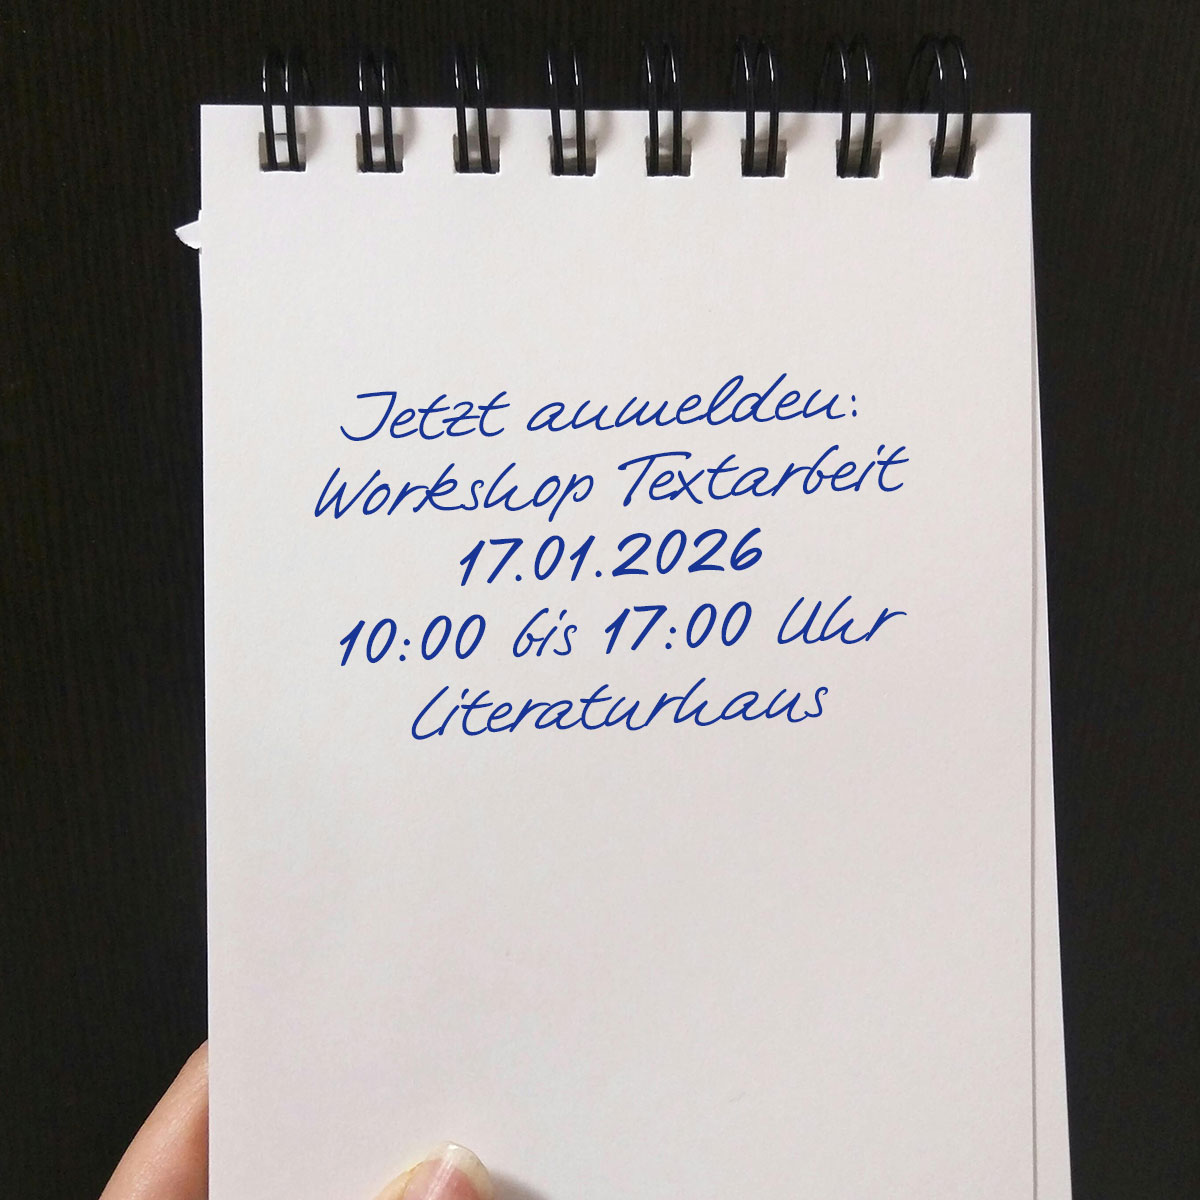 Jetzt anmelden:
Workshop Textarbeit
17.01.2026
10:00 bis 17:00 Uhr
Literaturhaus